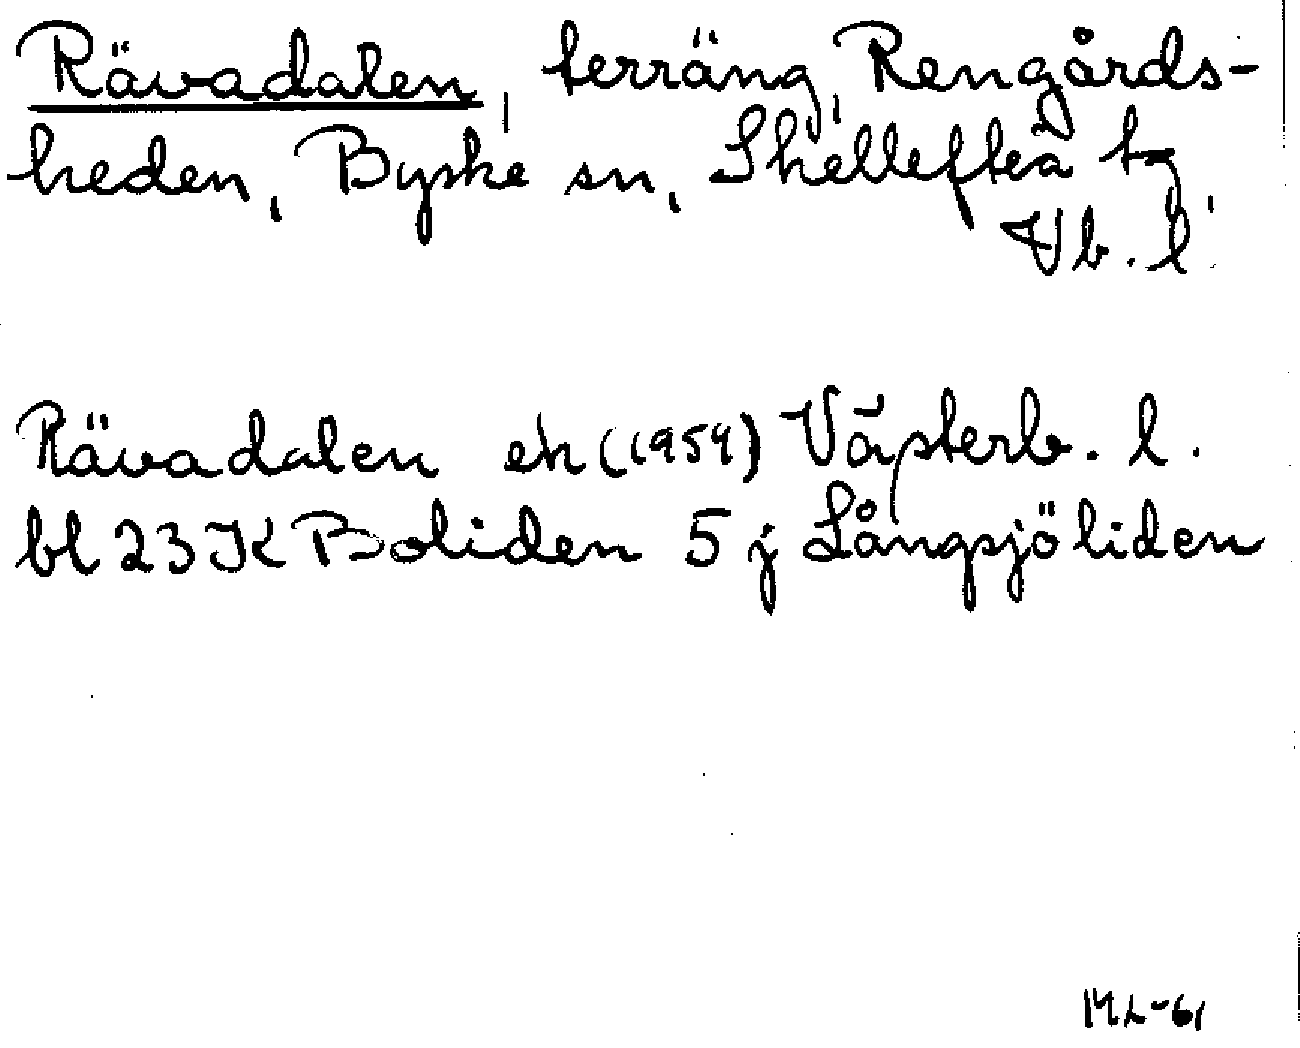 Rävadalen, terräng, Rengårds-
heden, Byske sn, Skellefteå tg,
Vb. l.
Rävadalen ek (1959) Västerb. l.
bl 23 K Boliden 5 j Långsjöliden
ML-61